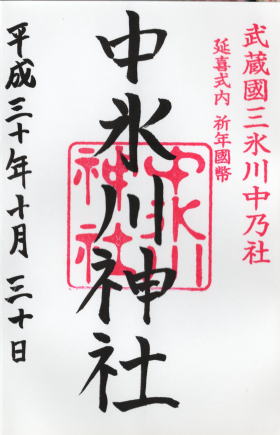 武蔵國三氷川中乃社
延喜式内 祈年國幣
中氷川神社
中氷川
神社
平成三十年十月三十日